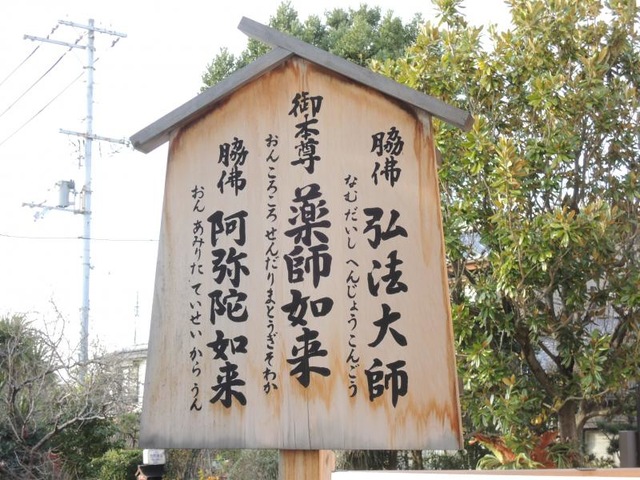 脇佛 弘法大師
なむだいし へんじょうこんごう
御本尊 薬師如来
おん ころころ せんだりまとうぎそわか
脇佛 阿弥陀如来
おん あみりた ていせいから うん